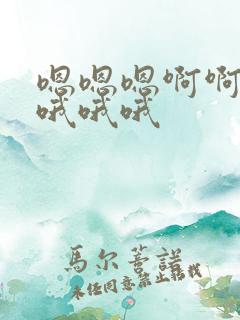 嗯嗯嗯啊啊
哦哦哦
馬尔善諾
未经同意禁止转载